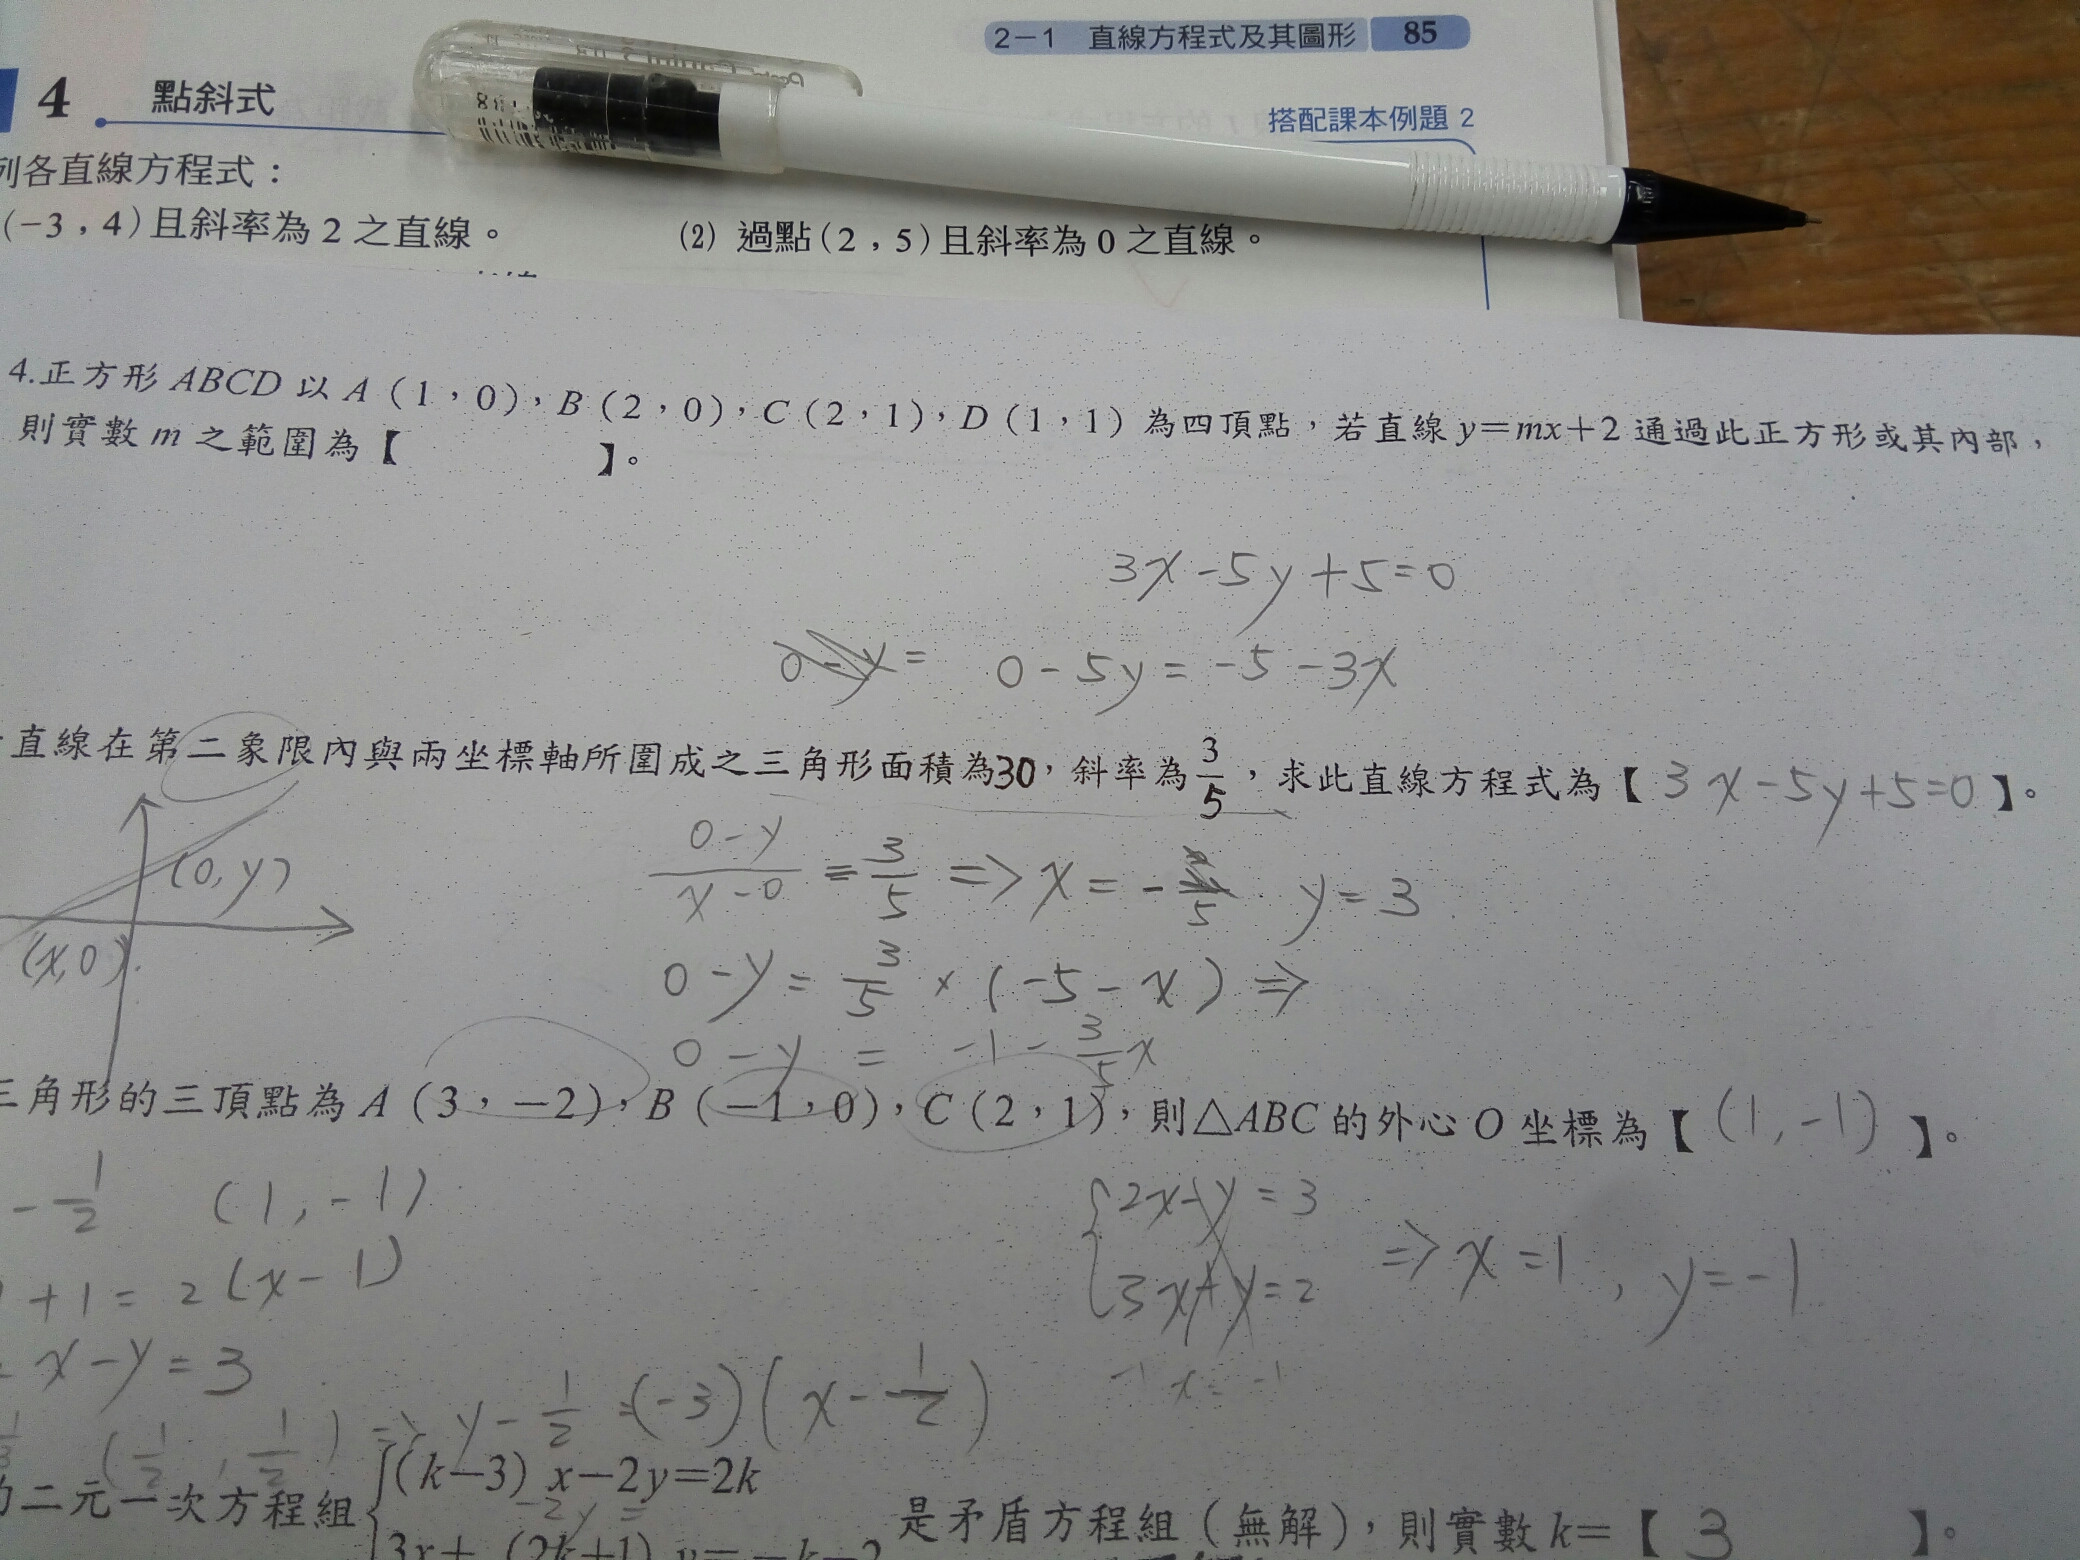 2－1 直線方程式及其圖形 85
4 點斜式
搭配課本例題 2
列各直線方程式：
(−3，4)且斜率為 2 之直線。
(2) 過點(2，5)且斜率為 0 之直線。
4.正方形 ABCD 以 A（1，0），B（2，0），C（2，1），D（1，1）為四頂點，若直線 y＝mx＋2 通過此正方形或其內部，
則實數 m 之範圍為【 】。
3x-5y+5=0
0-5y=-5-3x
直線在第二象限內與兩坐標軸所圍成之三角形面積為30，斜率為 3/5，求此直線方程式為【3x-5y+5=0】。
(0,y)
(x,0)
0-y/x-0 = 3/5 => x = - 5 y=3
0-y = 3/5 × (-5-x) =>
0-y = -1-3/5x
三角形的三頂點為 A（3，−2），B（−1，0），C（2，1），則△ABC 的外心 O 坐標為【(1,-1)】。
-1/2 (1,-1)
+1=2(x-1)
x-y=3
{2x-y=3
3x+y=2 => x=1, y=-1
-1 x=-1
(1/2, 1/2) => y-1/2=(-3)(x-1/2)
二元一次方程組{(k−3) x−2y＝2k
3x＋（2k＋1）y＝−k−2
是矛盾方程組（無解），則實數 k＝【3】。